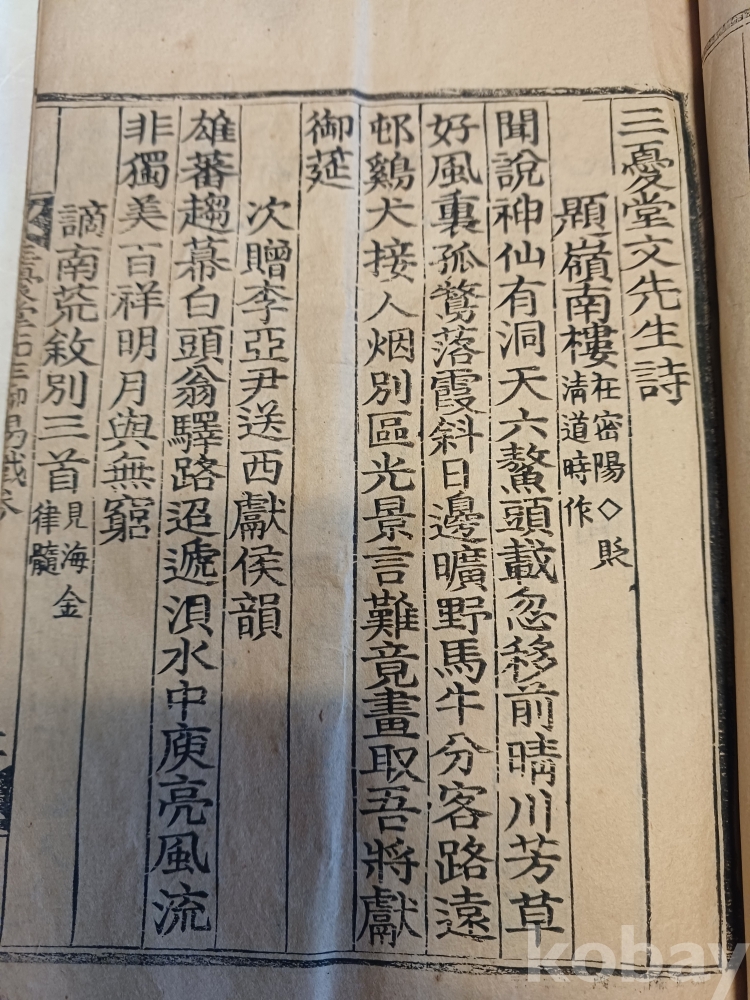 三憂堂文先生詩
題嶺南樓 在密陽◇貶
淸道時作
聞說神仙有洞天六鰲頭載忽移前晴川芳草
好風裏孤鶩落霞斜日邊曠野馬牛分客路遠
邨鷄犬接人烟別區光景言難竟畫取吾將獻
御莚
次贈李亞尹送西獻侯韻
雄蕃趨幕白頭翁驛路迢遞浿水中庾亮風流
非獨美百祥明月與無窮
謫南荒敘別三首 見海金
律髓
kobay